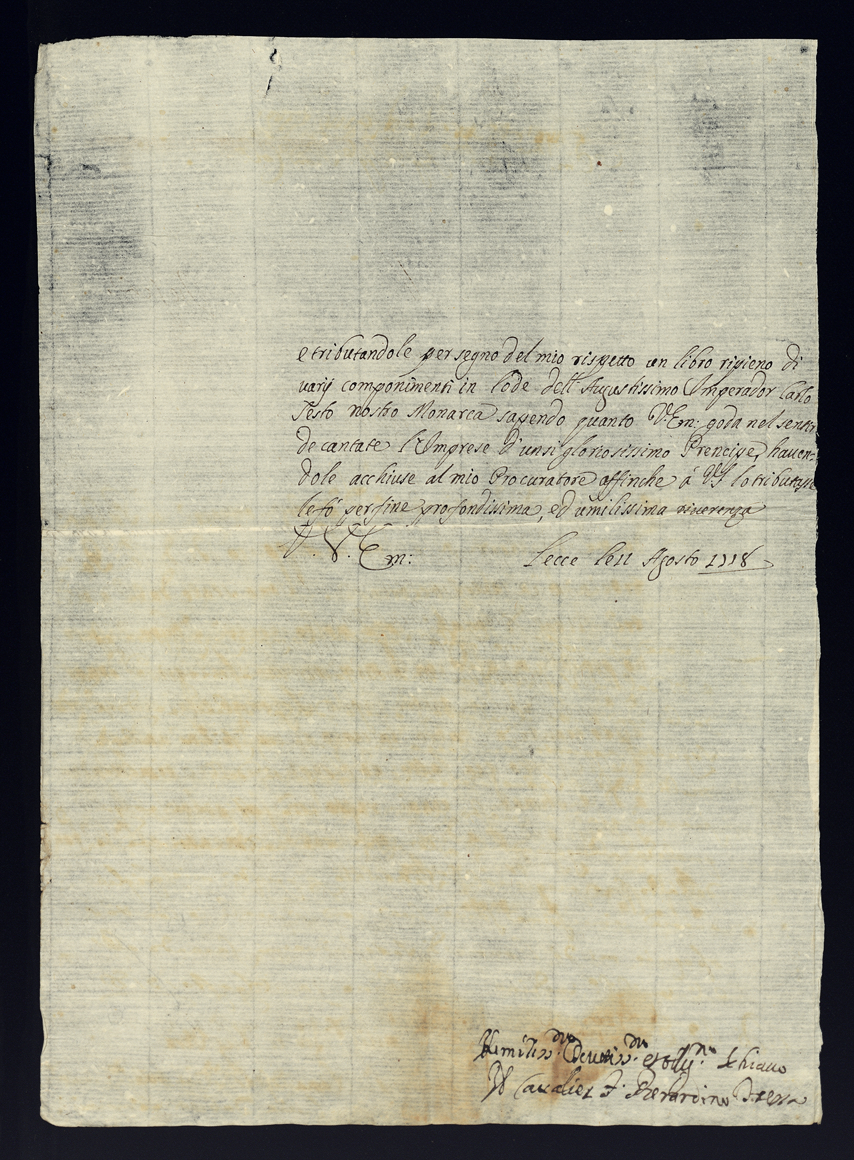 e tributandole per segno del mio rispetto un libro ripieno di
varij componimenti in lode dell'Augustissimo Imperador Carlo
Sesto nostro Monarca sapendo quanto V. Em: goda nel sentir
decantate l'Imprese d'un si gloriosissimo Prencipe, haven-
dole acchiuse al mio Procuratore affinche á V.S. lo tributasse
le fó per fine profondissima, ed umilissima riverenza
D. V. Em: Lecce le 11 Agosto 1718
Umiliss.mo Devotiss.mo et Schiavo
Il Cavalier F. Berardino